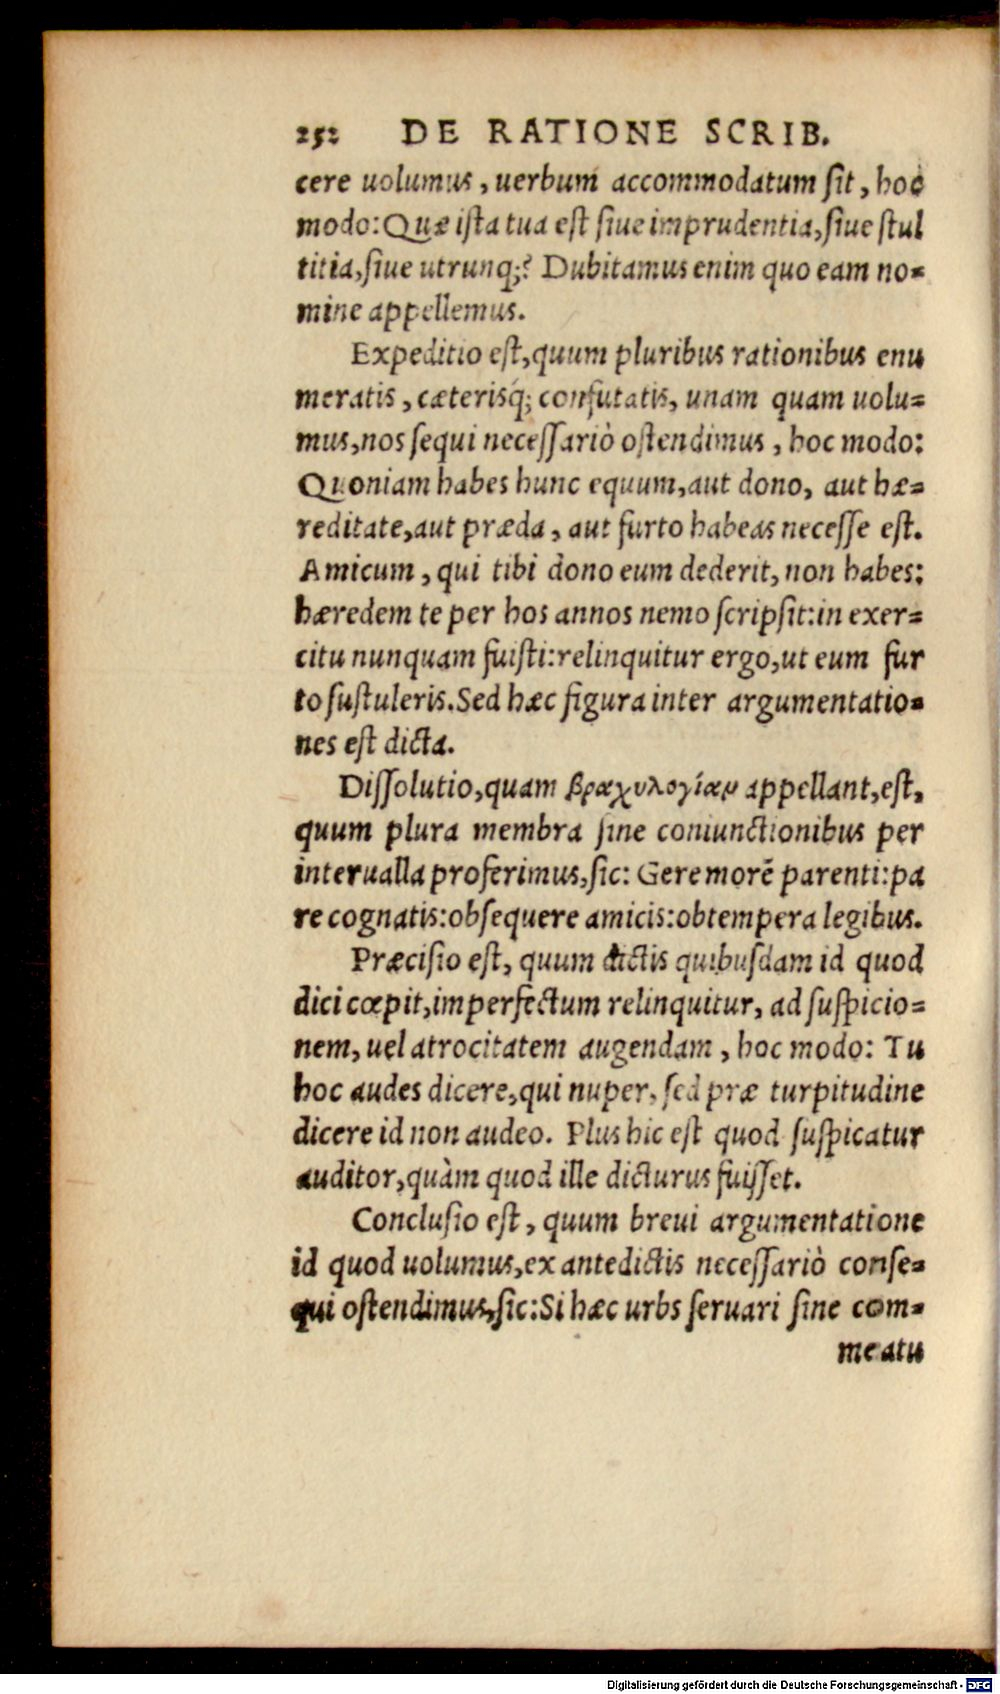 252 DE RATIONE SCRIB.
cere uolumus, uerbum accommodatum ſit, hoc
modo: Quæ iſta tua eſt ſiue imprudentia, ſiue ſtul
titia, ſiue utrunq;? Dubitamus enim quo eam no=
mine appellemus.
Expeditio eſt, quum pluribus rationibus enu
meratis, cæterisq́; confutatis, unam quam uolu=
mus, nos ſequi neceſſariò oſtendimus, hoc modo:
Quoniam habes hunc equum, aut dono, aut hæ=
reditate, aut præda, aut furto habeas neceſſe eſt.
Amicum, qui tibi dono eum dederit, non habes:
hæredem te per hos annos nemo ſcripſit: in exer=
citu nunquam fuiſti: relinquitur ergo, ut eum fur
to ſuſtuleris. Sed hæc figura inter argumentatio=
nes eſt dicta.
Diſſolutio, quam βραχυλογίαν appellant, eſt,
quum plura membra ſine coniunctionibus per
interualla proferimus, ſic: Gere morē parenti: pa
re cognatis: obſequere amicis: obtempera legibus.
Præciſio eſt, quum dictis quibuſdam id quod
dici cœpit, imperfectum relinquitur, ad ſuſpicio=
nem, uel atrocitatem augendam, hoc modo: Tu
hoc audes dicere, qui nuper, ſed præ turpitudine
dicere id non audeo. Plus hic eſt quod ſuſpicatur
auditor, quàm quod ille dicturus fuiſſet.
Concluſio eſt, quum breui argumentatione
id quod uolumus, ex antedictis neceſſariò conſe=
qui oſtendimus, ſic: Si hæc urbs ſeruari ſine com=
meatu
Digitalisierung gefördert durch die Deutsche Forschungsgemeinschaft - DFG